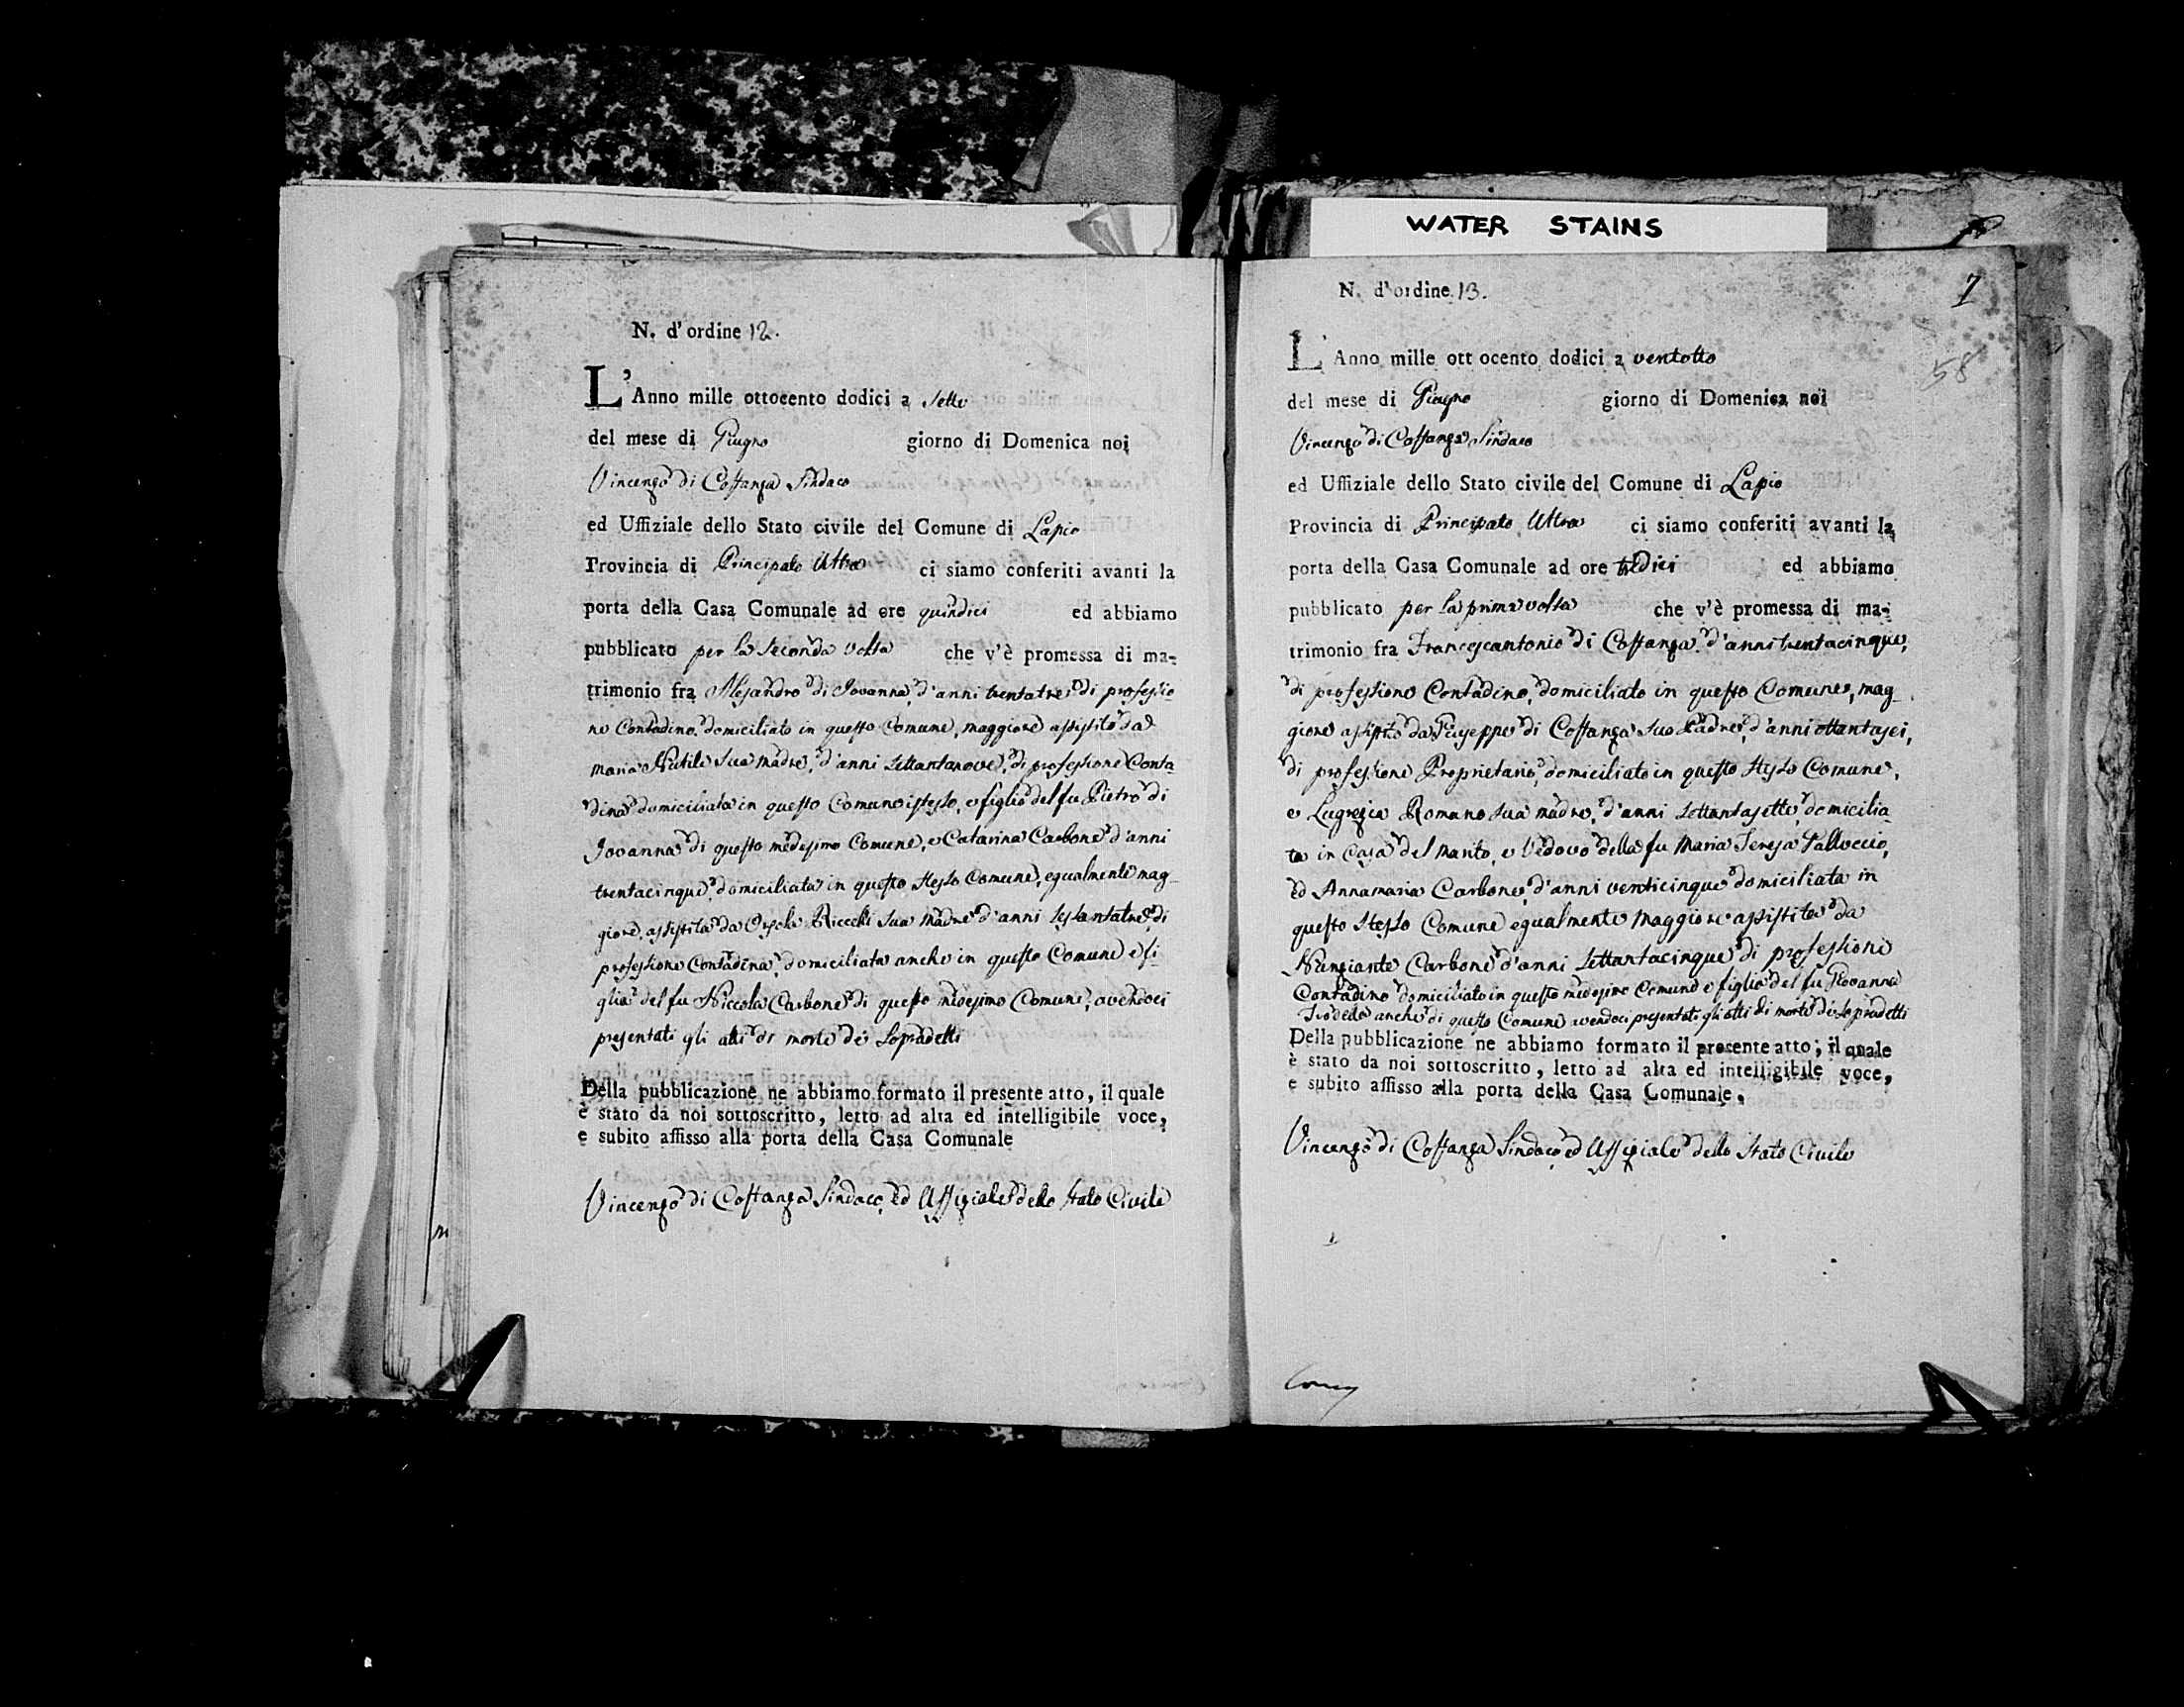 WATER STAINS
N. d'ordine 12.
L'Anno mille ottocento dodici a sette
del mese di Giugno giorno di Domenica noi
Vincenzo di Costanza Sindaco
ed Uffiziale dello Stato civile del Comune di Lapio
Provincia di Principato Ultra ci siamo conferiti avanti la
porta della Casa Comunale ad ore quindici ed abbiamo
pubblicato per la seconda volta che v'è promessa di ma-
trimonio fra Alesandro di Iovanna, d'anni trentatre di professio-
ne Contadino domiciliato in questo Comune, maggiore assistito da
Maria Nutile sua madre, d'anni settantanove, di professione Conta-
dina domiciliata in questo Comune istesso, e figlio del fu Pietro di
Iovanna di questo medesimo Comune, e Catarina Carbone d'anni
trentacinque, domiciliata in questo stesso Comune, egualmente mag-
giore, assistita da Orsola Riccelli sua madre d'anni sessantatre, di
professione Contadina, domiciliata anche in questo Comune e fi-
glia del fu Niccola Carbone di questo medesimo Comune, avendoci
presentati gli atti di morte de' sopradetti
Della pubblicazione ne abbiamo formato il presente atto, il quale
è stato da noi sottoscritto, letto ad alta ed intelligibile voce,
e subito affisso alla porta della Casa Comunale
Vincenzo di Costanza Sindaco, ed Uffiziale dello Stato Civile
7
58
N. d'ordine 13.
L'Anno mille ottocento dodici a ventotto
del mese di Giugno giorno di Domenica noi
Vincenzo di Costanza Sindaco
ed Uffiziale dello Stato civile del Comune di Lapio
Provincia di Principato Ultra ci siamo conferiti avanti la
porta della Casa Comunale ad ore tredici ed abbiamo
pubblicato per la prima volta che v'è promessa di ma-
trimonio fra Francescantonio di Costanza d'anni trentacinque,
di professione Contadino, domiciliato in questo Comune, mag-
giore assistito da Giuseppe di Costanza suo Padre, d'anni ottantasei,
di professione Proprietario, domiciliato in questo stesso Comune,
e Lugrezia Romano sua madre, d'anni settantasette, domicilia-
ta in casa del marito, e Vedovo della fu Maria Teresa
ed Annamaria Carbone, d'anni venticinque domiciliata in
questo stesso Comune egualmente maggiore assistita da
Nunziante Carbone d'anni settantacinque di professione
Contadino domiciliato in questo medesimo Comune e figlia del fu Giovanna
anche di questo Comune avendoci presentati gli atti di morte de' sopradetti
Della pubblicazione ne abbiamo formato il presente atto, il quale
è stato da noi sottoscritto, letto ad alta ed intelligibile voce,
e subito affisso alla porta della Casa Comunale.
Vincenzo di Costanza Sindaco, ed Uffiziale dello Stato Civile